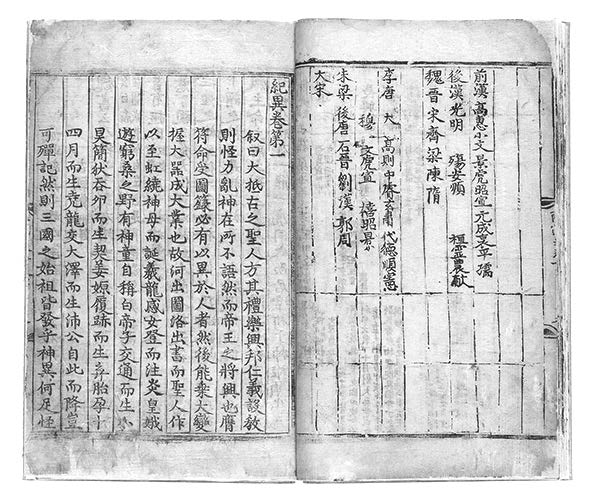 前漢 高惠小文 景虎昭宣 元成哀平 孺
後漢光明 殤安順 桓靈農献
魏晉宋齊梁陳隋
李唐 大 高則中睿玄肅代德順憲
穆 文虎宣 僖昭景
朱梁 後唐 石晉 劉漢 郭周
大宋
紀異卷第一
叙曰大抵古之聖人方其禮樂興邦仁義設教
則怪力亂神在所不語然而帝王之將興也膺
符命受圖籙必有以異於人者然後能乗大變
握大器成大業也故河出圖洛出書而聖人作
以至虹繞神母而誕羲龍感女登而注炎皇娥
遊窮桑之野有神童自稱白帝子交通而生小
昊簡狄吞卵而生契姜嫄履跡而生弃胎孕十
四月而生堯龍交大澤而生沛公自此而降豈
可殫記然則三國之始祖皆發乎神異何足怪